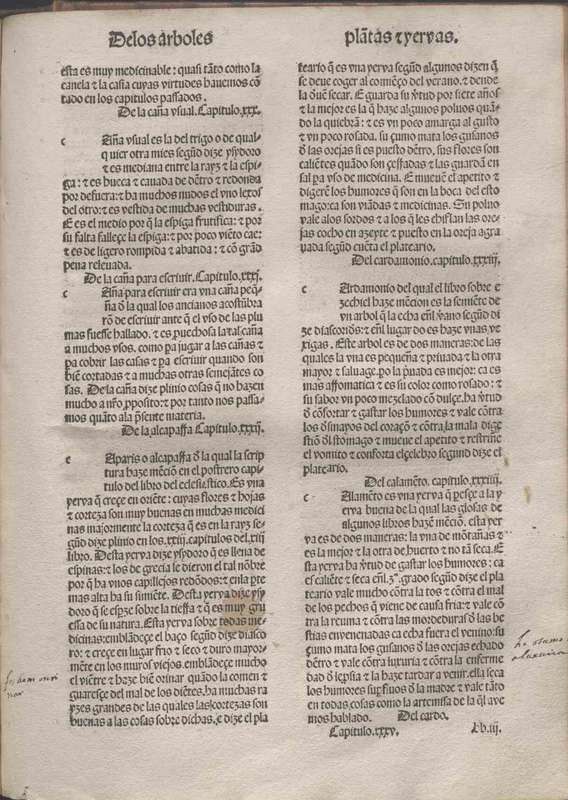 Delos àrboles
esta es muy medicinable: quasi tãto como la
canela & la casia cuyas virtudes havemos cõ
tado en los capitulos passados.
De la caña vsual. Capitulo. xxx.
c Aña vsual es la del trigo o de qual-
quier otra mies segũd dize ysydoro
& es mediana entre la rayz & la espi-
ga: & es hueca & cauada de dẽtro & redonda
por defuera: & ha muchos nudos el vno lexos
del otro: & es vestida de muchas vestiduras.
E es el medio por q̃ la espiga frutifica: & por
su falta fallece la espiga: & por poco viẽto cae:
& es de ligero rompida & abatida: & cõ grãd
pena releuada.
De la caña para escriuir. Capitulo. xxxj.
c Aña para escriuir era vna caña peq̃-
ña d̃ la qual los ancianos acostũbra
rõ de escriuir ante q̃ el vso de las plu
mas fuesse hallado. & es ꝓuechosa la tal caña
a muchos vsos. como ꝑa jugar a las cañas &
ꝑa cobrir las casas & ꝑa escriuir quando son
biẽ cortadas & a muchas otras semejãtes co
sas. De la caña dize plinio cosas q̃ no hazen
mucho a nr̃o ꝓposito: & por tanto nos passa-
mos quãto ala p̃sente materia.
De la alcaparra Capitulo. xxxij.
c Aparis o alcaparra d̃ la qual la scrip
tura haze mẽciõ en el postrero capi
tulo del libro del eclesiastico. Es vna
yerva q̃ crece en oriẽte: cuyas flores & hojas
& corteza son muy buenas en muchas medici
nas majormente la corteza q̃ es en la rayz se-
gũd dize plinio en los. xxij. capitulos del. xiij
libro. Desta yerva dize ysydoro q̃ es llena de
espinas: & los de grecia le dieron el tal nõbre
por q̃ ha vnos capillejos redõdos: & enla ꝑte
mas alta ha su simiẽte. Desta yerva dize ysy
doro q̃ se esparze sobre la tierra & q̃ es muy gru
essa de su natura. Esta yerva sobre todas me-
dicinas: emblãdece el baço segũd dize diasco
ro: & crece en lugar frio & seco & duro mayor-
mẽte en los muros viejos. emblãdece mucho
el viẽtre & haze biẽ orinar quãdo la comen &
guaresce del mal de los diẽtes. ha muchas ra
yzes grandes de las quales las cortezas son
buenas a las cosas sobre dichas. e dize el pla
plãtas & yervas.
teario q̃ es vna yerva segũd algunos dizen q̃
se deve coger al comẽço del verano. & dende
la dũe secar. E guarda su ṽtud por siete años
& la mejor es la q̃ haze algunos poluos quã-
do la quiebrã: & es vn poco amarga al gusto
& vn poco rosada. su çumo mata los gusanos
d̃ las orejas si es puesto dẽtro, sus flores son
caliẽtes quãdo son cerradas & las guardã en
sal ꝑa vso de medicina. E mueuẽ el apetito &
digerẽ los humores q̃ son en la boca del esto
mago: ca son viãdas & medicinas. Su poluo
vale alos sordos & a los q̃ les chiflan las ore
jas cocho en azeyte & puesto en la oreja agra
uada segũd cuẽta el plateario.
Del cardamonio. capitulo. xxxiij.
c Ardamonio del qual el libro sobre e
zechiel haze mẽcion es la semiẽte de
vn arbol q̃ la echa enl̃ ṽano segũd di
ze diascoridus: & enl̃ lugar do es haze vnas ve
xigas. Este arbol es de dos maneras: de las
quales la vna es pequeña & priuada & la otra
mayor & saluage. ꝑo la p̃uada es mejor: ca es
mas aromatica & es su color como rosado: &
su sabor vn poco mezclado con dulce. ha ṽtud
d̃ cõfortar & gastar los humores & vale cõtra
los d̃smayos del coraçõ & cõtra la mala dige
stiõ dl̃ estomago & mueue el apetito & restriñe
el vomito & conforta el celebro segund dize el
plateario.
Del calamẽto. capitulo. xxxiiij.
c Alamẽto es vna yerva q̃ paresce a la y
erva buena de la qual las glosas de
algunos libros hazẽ mẽciõ. esta yer
va es de dos maneras: la vna de mõtañas &
es la mejor & la otra de huerto & no tã seca. E
esta yerva ha ṽtud de gastar los humores: ca
es caliẽte & seca enl̃. 3º. grado segũd dize el pla
teario vale mucho cõtra la tos & cõtra el mal
de los pechos q̃ viene de causa fria: & vale cõ
tra la reuma & cõtra las mordeduras d̃ las be
stias envenenadas ca echa fuera el venino: su
çumo mata los gusanos d̃ las orejas echado
dẽtro & vale cõtra luxuria & cõtra la enferme
dad d̃ leprosia & la haze tardar a venir. ella seca
los humores suꝑfluos d̃ la madre & vale tãto
en todas cosas como la artemisa de la q̃l ave
mos hablado. Del cardo.
Capitulo. xxxv. hb. iij.